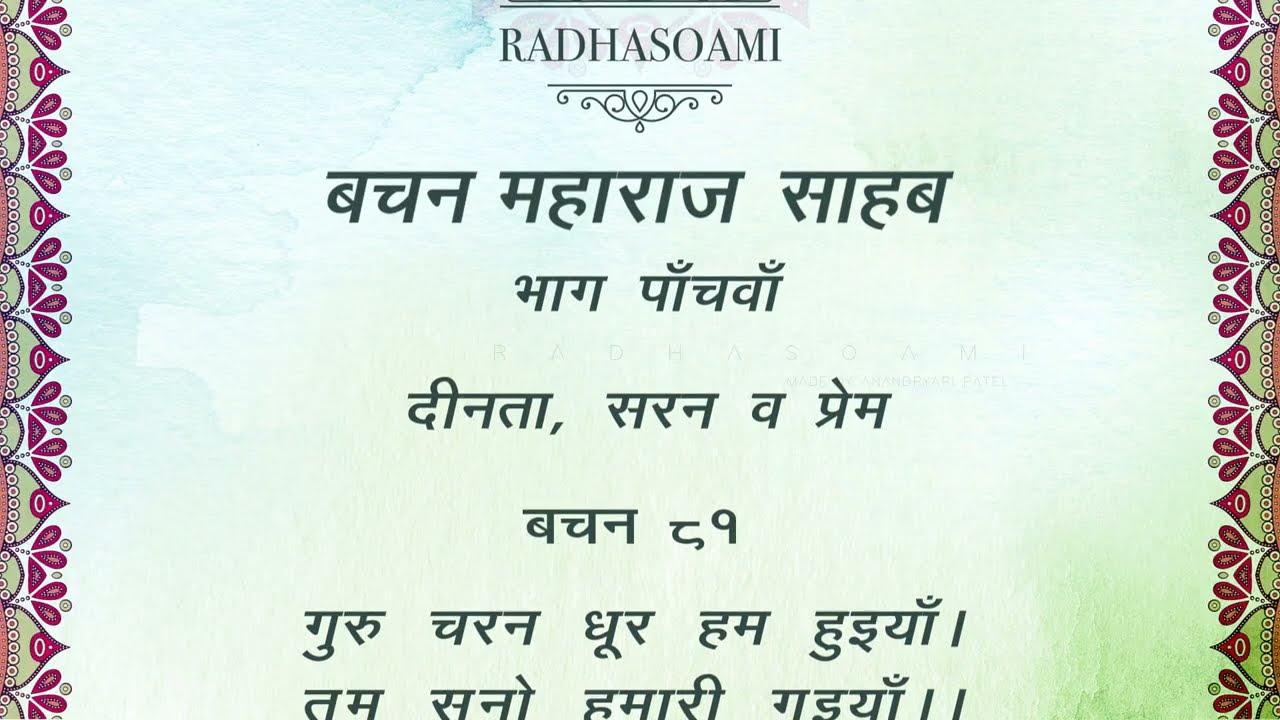 RADHASOAMI
बचन महाराज साहब
भाग पाँचवाँ
RADHASOAMI
MADE BY ANANDPYARI PATEL
दीनता, सरन व प्रेम
बचन ८१
गुरु चरन धूर हम हुइयाँ।
तुम सुनो हमारी गुइयाँ।।